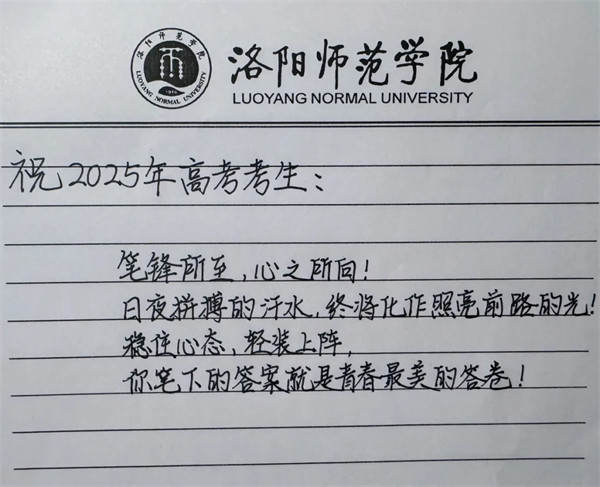 洛阳师范学院
LUOYANG NORMAL UNIVERSITY
洛阳师范学院
LUOYANG NORMAL UNIVERSITY
祝2025年高考考生：
笔锋所至，心之所向！
日夜拼搏的汗水，终将化作照亮前路的光！
稳住心态，轻装上阵，
你笔下的答案就是青春最美的答卷！